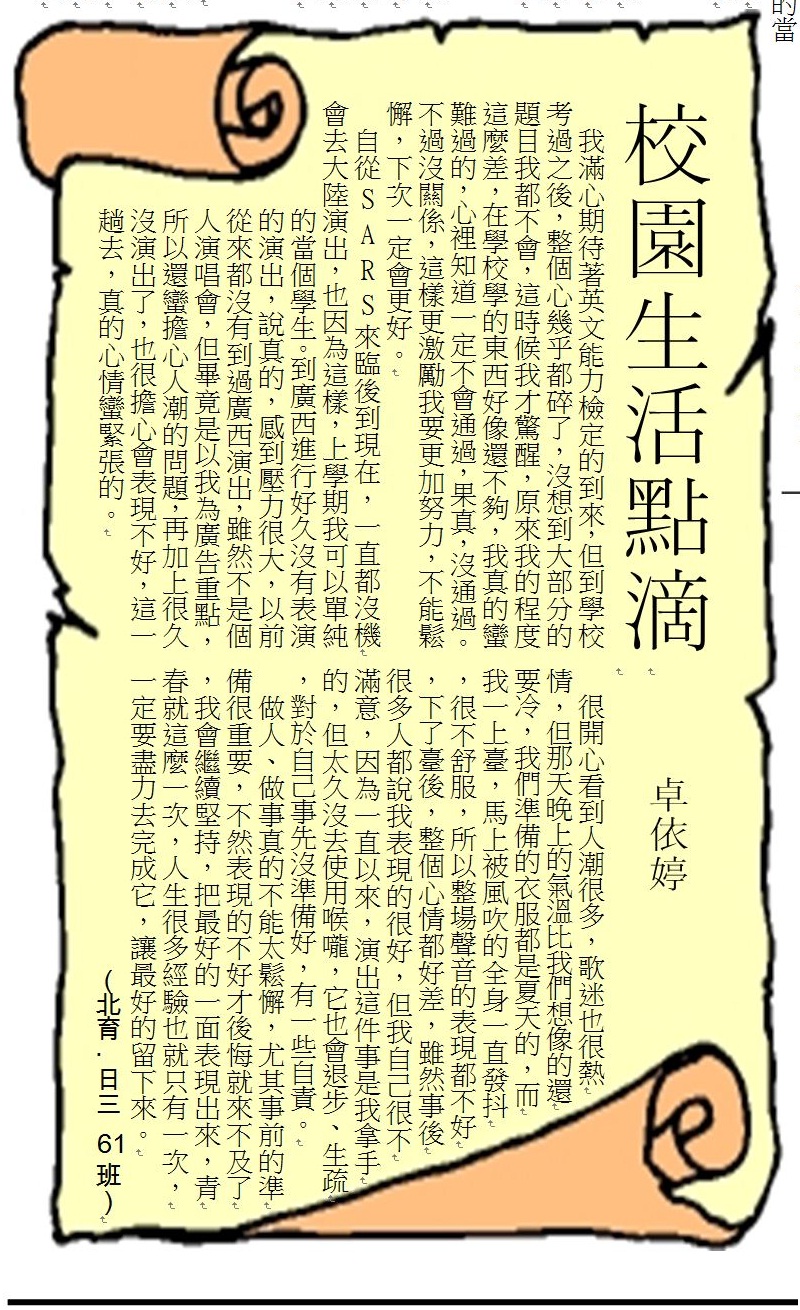 的當
校園生活點滴
卓依婷
我滿心期待著英文能力檢定的到來，但到學校
考過之後，整個心幾乎都碎了，沒想到大部分的
題目我都不會，這時候我才驚醒，原來我的程度
這麼差，在學校學的東西好像還不夠，我真的蠻
難過的，心裡知道一定不會通過，果真，沒通過。
不過沒關係，這樣更激勵我要更加努力，不能鬆
懈，下次一定會更好。
自從SARS來臨後到現在，一直都沒機
會去大陸演出，也因為這樣，上學期我可以單純
的當個學生。到廣西進行好久沒有表演
的演出，說真的，感到壓力很大，以前
從來都沒有到過廣西演出，雖然不是個
人演唱會，但畢竟是以我為廣告重點，
所以還蠻擔心人潮的問題，再加上很久
沒演出了，也很擔心會表現不好，這一
趟去，真的心情蠻緊張的。
很開心看到人潮很多，歌迷也很熱
情，但那天晚上的氣溫比我們想像的還
要冷，我們準備的衣服都是夏天的，而
我一上臺，馬上被風吹的全身一直發抖
，很不舒服，所以整場聲音的表現都不好
，下了臺後，整個心情都好差，雖然事後
很多人都說我表現的很好，但我自己很不
滿意，因為一直以來，演出這件事是我拿手
的，但太久沒去使用喉嚨，它也會退步、生疏
，對於自己事先沒準備好，有一些自責。
做人、做事真的不能太鬆懈，尤其事前的準
備很重要，不然表現的不好才後悔就來不及了
，我會繼續堅持，把最好的一面表現出來，青
春就這麼一次，人生很多經驗也就只有一次，
一定要盡力去完成它，讓最好的留下來。
(北育．日三 61班)